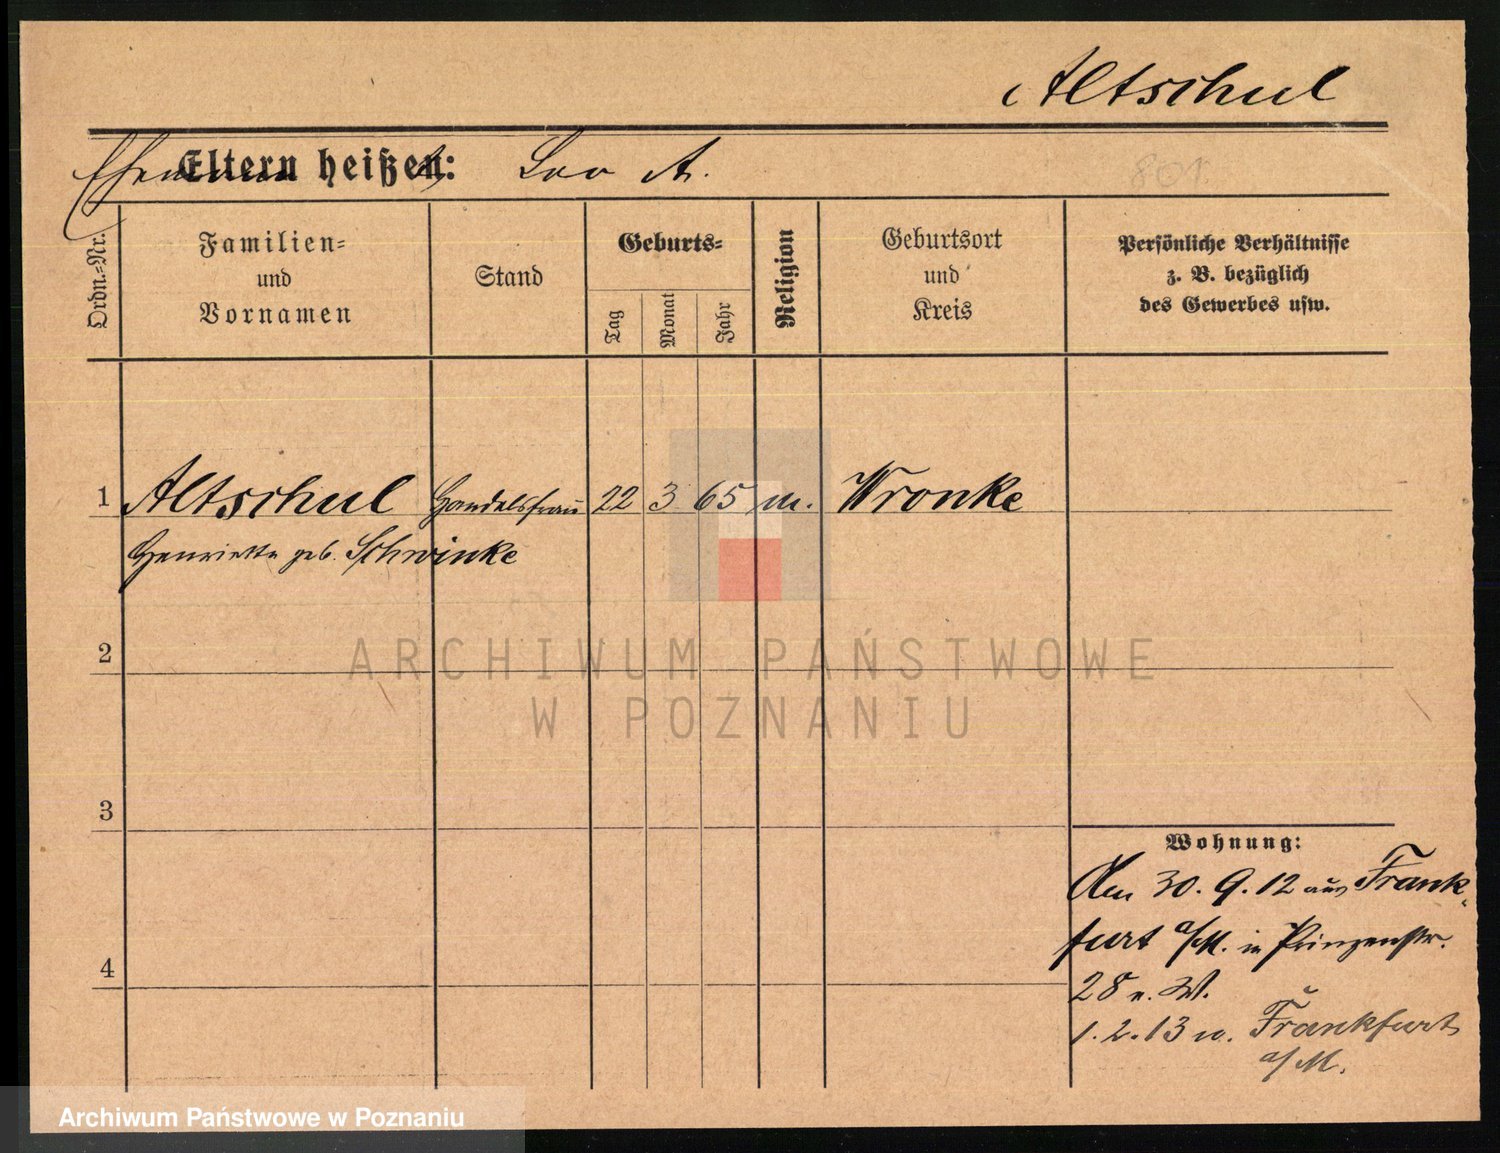 Altschul
Ehemann Eltern heißen: Leo A.
801
Ordn.-Nr.
Familien-
und
Vornamen
Stand
Geburts-
Tag
Monat
Jahr
Religion
Geburtsort
und
Kreis
Persönliche Verhältnisse
z. B. bezüglich
des Gewerbes usw.
1 Altschul Handelsfrau 22 3 65 m. Wronke
Henriette geb. Schwinke
2
ARCHIWUM PAŃSTWOWE
W POZNANIU
3
Wohnung:
Am 30. 9. 12 aus Frank-
furt a/M. in Prinzenstr.
4
28 v. W.
1. 2. 13 n. Frankfurt
a/M.
Archiwum Państwowe w Poznaniu